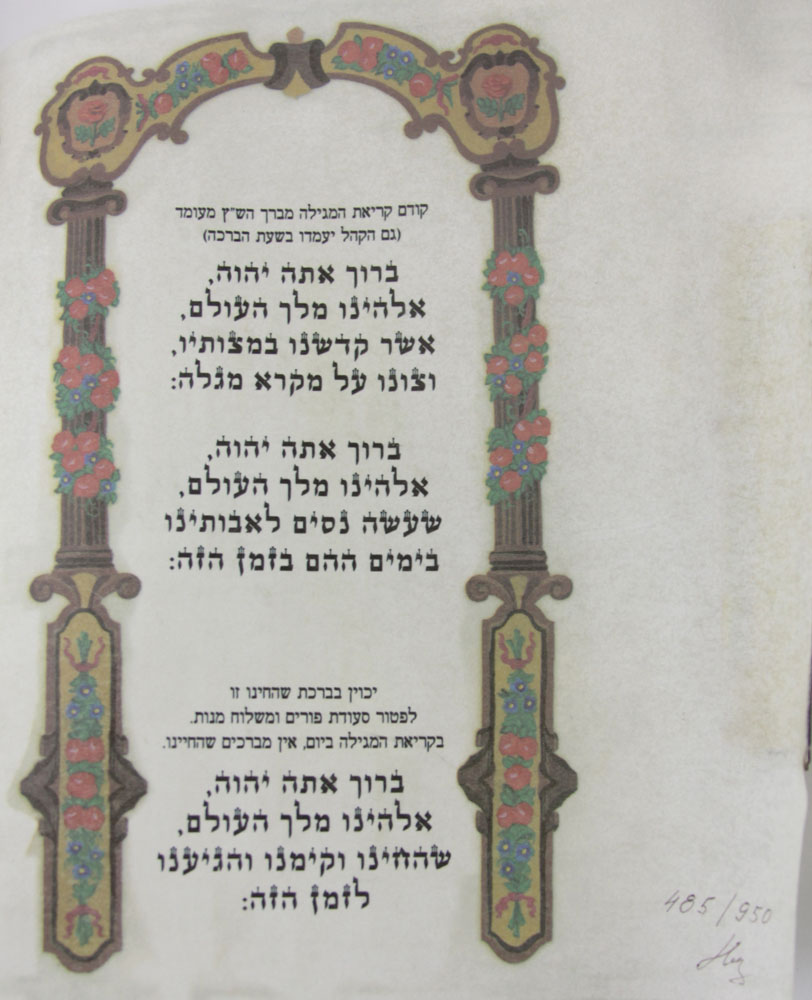 קודם קריאת המגילה מברך הש"ץ מעומד
(גם הקהל יעמדו בשעת הברכה)
ברוך אתה יהוה,
אלהינו מלך העולם,
אשר קדשנו במצותיו,
וצונו על מקרא מגלה:
ברוך אתה יהוה,
אלהינו מלך העולם,
שעשה נסים לאבותינו
בימים ההם בזמן הזה:
יכוין בברכת שהחינו זו
לפטור סעודת פורים ומשלוח מנות.
בקריאת המגילה ביום, אין מברכים שהחיינו.
ברוך אתה יהוה,
אלהינו מלך העולם,
שהחינו וקימנו והגיענו
לזמן הזה:
485/950